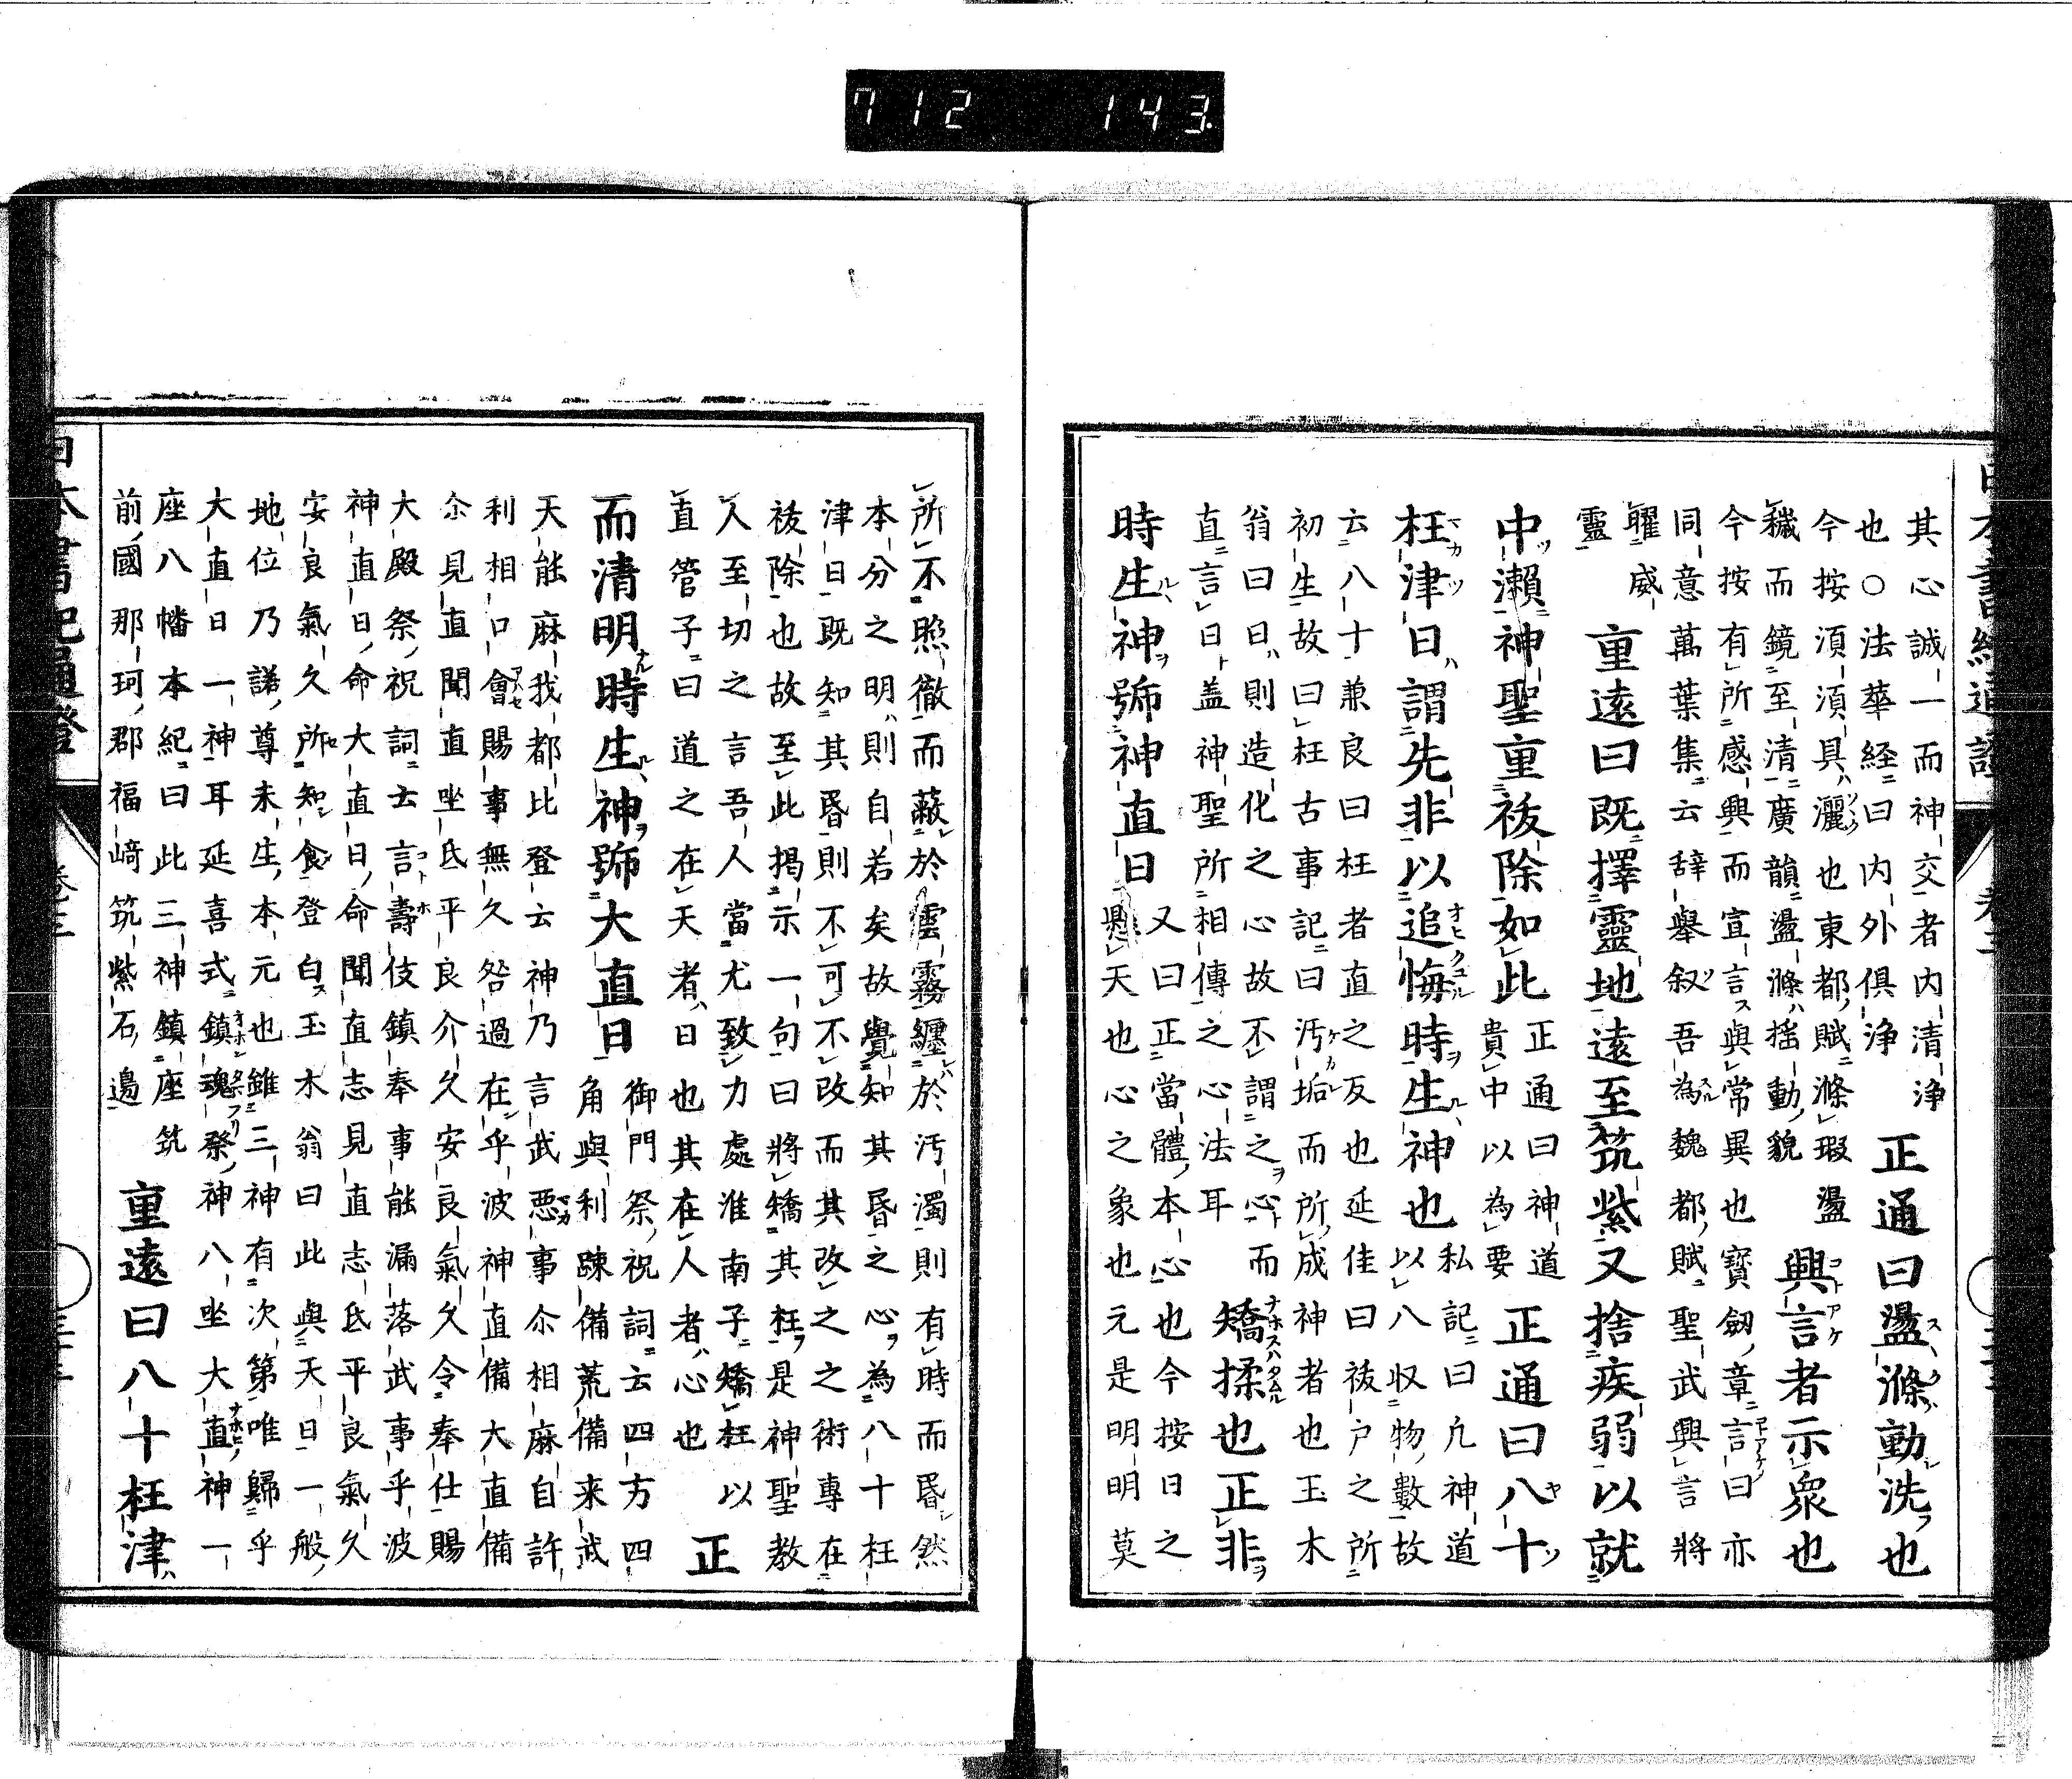 712 143
其心誠一而神交者内清浄
也○法華経曰内外俱浄
正通曰盪滌動洗也
今按湏湏具灑也東都賦滌瑕盪
穢而鏡至清廣韻盪滌揺動貌
興言者示衆也
今按有所感興而宣言與常異也寶劔章言曰亦
同意萬葉集云辞舉叙吾為魏都賦聖武興言将
曜威
靈
重遠曰既擇靈地遠至筑紫又捨疾弱以就
中瀬神聖重祓除如此
正通曰神道
貴中以為要
正通曰八十
枉津日謂先非以追悔時生神也
私記曰凢神道
以八収物數故
云八十兼良曰枉者直之反也延佳曰祓戸之所
初生故曰枉古事記曰汚垢而所成神者也玉木
翁曰日則造化之心故不謂之心而
直言日盖神聖所相傳之心法耳
矯揉也正非
時生神号神直日
又曰正當體本心也今按日之
懸天也心之象也元是明明莫
所不照徹而蔽於雲霧纏於汚濁則有時而昏然
本分之明則自若矣故覺知其昏之心為八十枉
津日既知其昏則不可不改而其改之之術專在
祓除也故至此掲示一句曰將矯其枉是神聖教
人至切之言吾人當尤致力處淮南子矯枉以
直管子曰道之在天者日也其在人者心也
正
而清明時生神号大直日
御門祭祝詞云四方四
角與利踈備荒備来武
天能麻我都比登云神乃言武悪事尓相麻自許
利相口會賜事無久咎過在乎波神直備大直備
尓見直聞直坐氐平良介久安良氣久令奉仕賜
大殿祭祝詞云言壽伎鎮奉事能漏落武事乎波
神直日命大直日命聞直志見直志氐平良氣久
安良氣久所知食登白玉木翁曰此與天日一般
地位乃諾尊未生本元也雖三神有次第唯歸乎
大直日一神耳延喜式鎮魂祭神八坐大直神一
座八幡本紀曰此三神鎮座筑
前國那珂郡福﨑筑紫石邉
重遠曰八十枉津